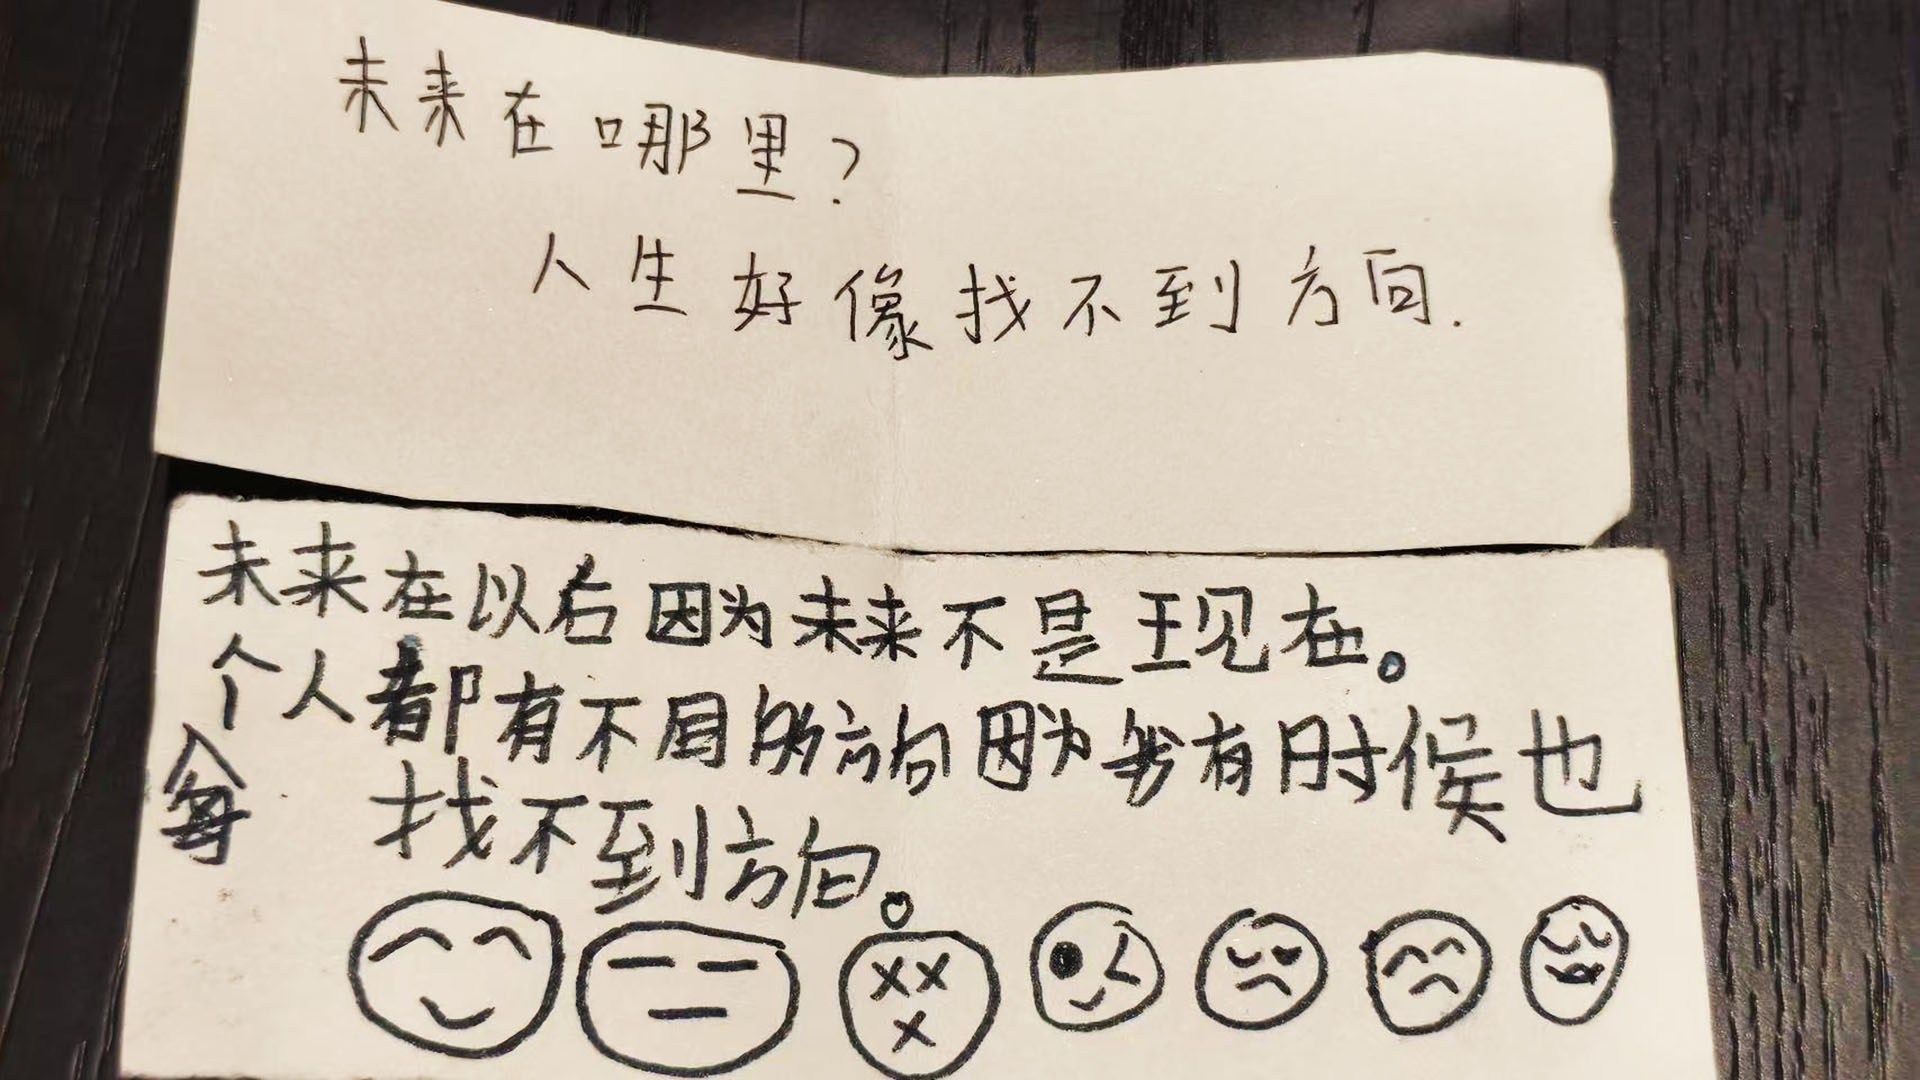 未来在哪里?
人生好像找不到方向.
未来在以右因为未来不是现在。
每个人都有不同的方向因为我有时候也
找不到方向。